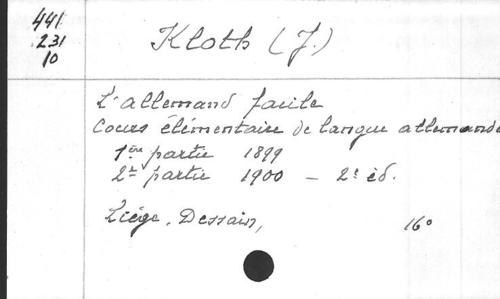 441
.231
10
Kloth (J.)
L'allemand facile
Cours élémentaire de langue allemande
1ère partie 1899
2de partie 1900 — 2e éd.
Liége, Dessain, 16°